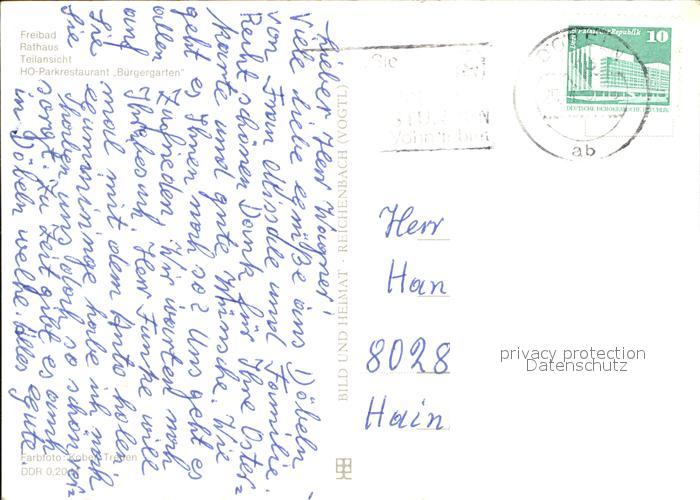 Freibad
Rathaus
Teilansicht
HO-Parkrestaurant „Bürgergarten"
Lieber Herr Wagner!
Viele liebe Grüße aus Döbeln
von Frau Missale und Familie.
Recht schönen Dank für Ihre Oster=
karte und gute Wünsche. Wie
geht es Ihnen noch so? Uns geht es
allen Zufrieden. Wir warten noch
auf Ihr Besuch. Herr Funke will
Sie mal mit dem Auto holen
habe ich mich
Sie haben uns doch so schön ver=
sorgt. Zu Zeit gibt es auch
in Döbeln welche. Alles Gute.
Farbfoto: Kober, Treuen
DDR 0,20
BILD UND HEIMAT · REICHENBACH (VOGTL)
Palast der Republik 10
DEUTSCHE DEMOKRATISCHE REPUBLIK
ab
Herr
Han
8028
Hain
privacy protection
Datenschutz